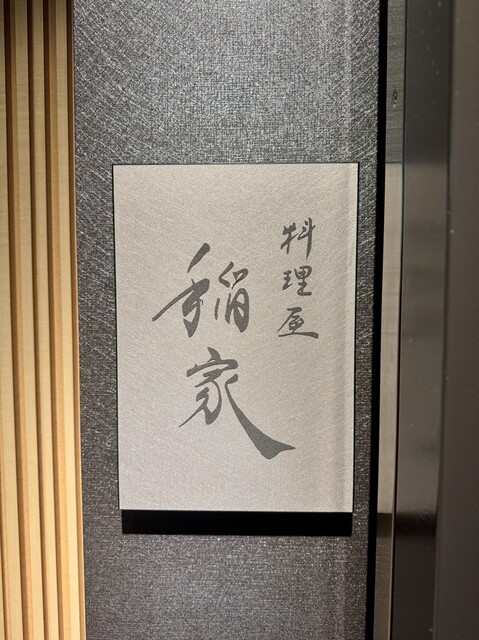 料理屋
稲家